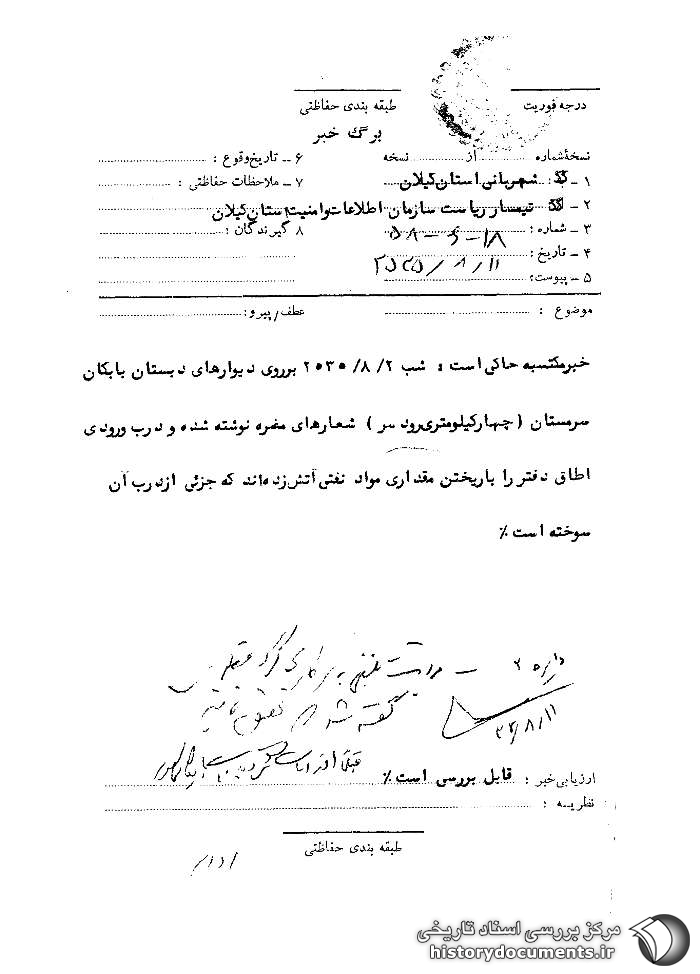 درجه فوریت
طبقه بندی حفاظتی
برگ خبر
نسخهٔ شماره ........ از ........ نسخه
۱ ــ : شهربانی استان گیلان
۲ ــ : تیمسار ریاست سازمان اطلاعات وامنیت استان گیلان
۳ ــ شماره : ۱۸-۶-۵۸
۴ ــ تاریخ : ۲۵۳۵/۸/۱۱
۵ ــ پیوست:
۶ ــ تاریخ وقوع :
۷ ــ ملاحظات حفاظتی :
۸ گیرندگان :
موضوع :
عطف/پیرو:
خبر مکتسبه حاکی است : شب ۲/ ۸/ ۲۵۳۵ برروی دیوارهای دبستان بابکان
سرمستان (چهارکیلومتری رود سر ) شعارهای مضره نوشته شده و درب ورودی
اطاق دفتر را باریختن مقداری مواد نفتی آتش زده اند که جزئی ازدرب آن
سوخته است ٪
گفته شد
ارزیابی خبر : قابل بررسی است ٪
نظریـه :
طبقه بندی حفاظتی
مرکز بررسی اسناد تاریخی
historydocuments.ir